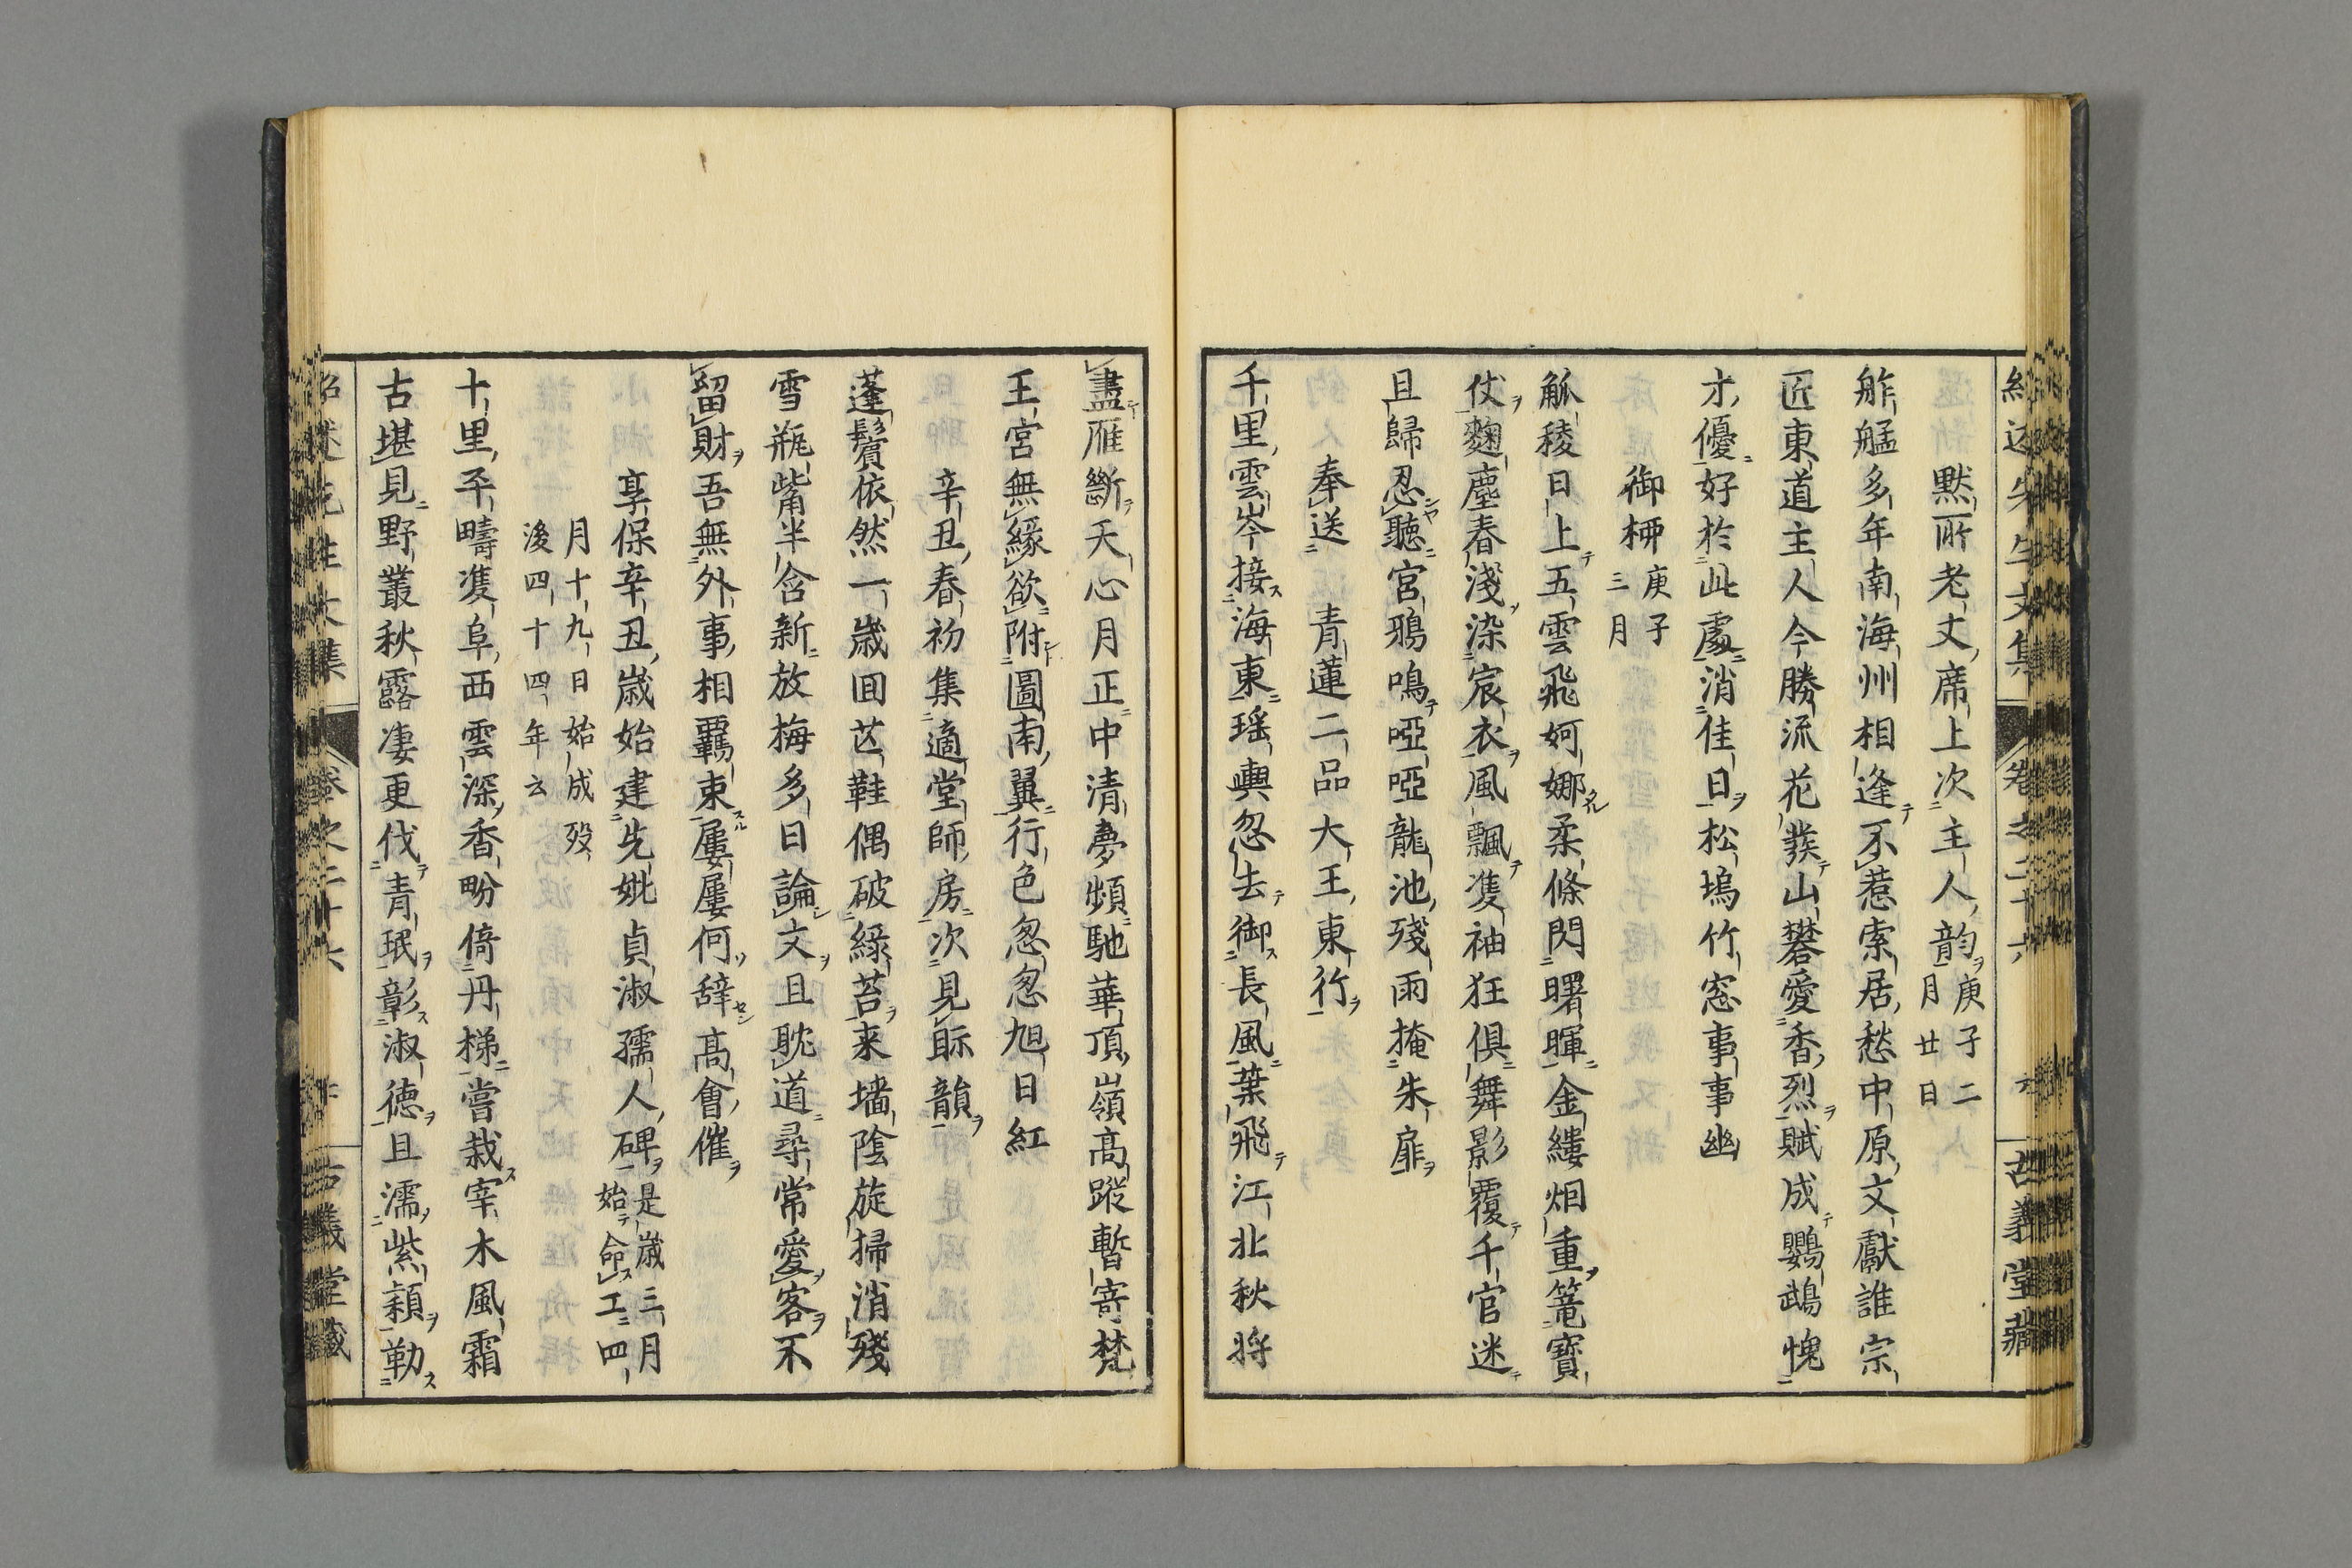 默所老丈席上次主人韵 庚子二月廿日
舴艋多年南海州相逢不惹索居愁中原文獻誰宗
匠東道主人今勝流花蕟山礬愛香烈賦成鸚鵡愧
才優好於此處消佳日松塢竹窓事事幽
御柳 庚子三月
觚稜日上五雲飛婀娜柔條閃曙暉金縷烟重篭寶
仗麴塵春淺染宸衣風飄隻袖狂俱舞影覆千官迷
且歸忍聽宮鴉鳴啞啞龍池殘雨掩朱扉
奉送 青蓮二品大王東行
千里雲岑接海東瑶輿忽去御長風葉飛江北秋将
盡雁斷天心月正中清夢頻馳華頂嶺高蹤暫寄梵
王宮無緣欲附圖南翼行色忽忽旭日紅
辛丑春初集適堂師房次見眎韻
蓬鬢依然一歳回芒鞋偶破綠苔来墻陰旋掃消殘
雪瓶觜半含新放梅多日論文且耽道尋常愛客不
留財吾無外事相羈束屢屢何辞高會催
享保辛丑歳始建先妣貞淑孺人碑 是歳三月始命工四
月十九日始成歿後四十四年云
十里平疇隻阜西雲深香畒倚丹梯嘗栽宰木風霜
古堪見野叢秋露凄更伐青珉彰淑徳且濡紫頴勒
卷之二十六
古義堂藏